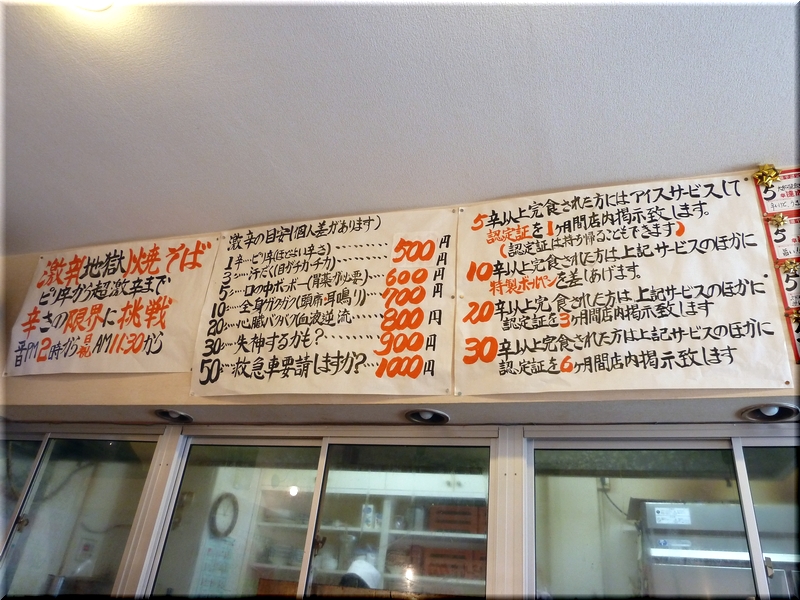 激辛地獄焼そば
ピリ辛から超激辛まで
辛さの限界に挑戦
PM2時から AM11:30から
激辛の目安(個人差があります)
1辛…ピリ辛(ほどよい辛さ)………500円
3…汗だく(目がチカチカ)………
5…口の中ボーボー(胃薬が必要)…600円
10…全身ガクガク(頭痛耳鳴り)…700円
20…心臓バクバク(血液逆流)……800円
30…失神するかも?…………900円
50…救急車要請しますか?…1000円
5辛以上完食された方にはアイスサービスして
認定証を1ヶ月間店内掲示致します。
(認定証は持ち帰ることもできます)
10辛以上完食された方には上記サービスのほかに
特製ボールペンを差しあげます。
20辛以上完食された方は上記サービスのほかに
認定証を3ヶ月間店内掲示致します
30辛以上完食された方は上記サービスのほかに
認定証を6ヶ月間店内掲示致します
5
5
5